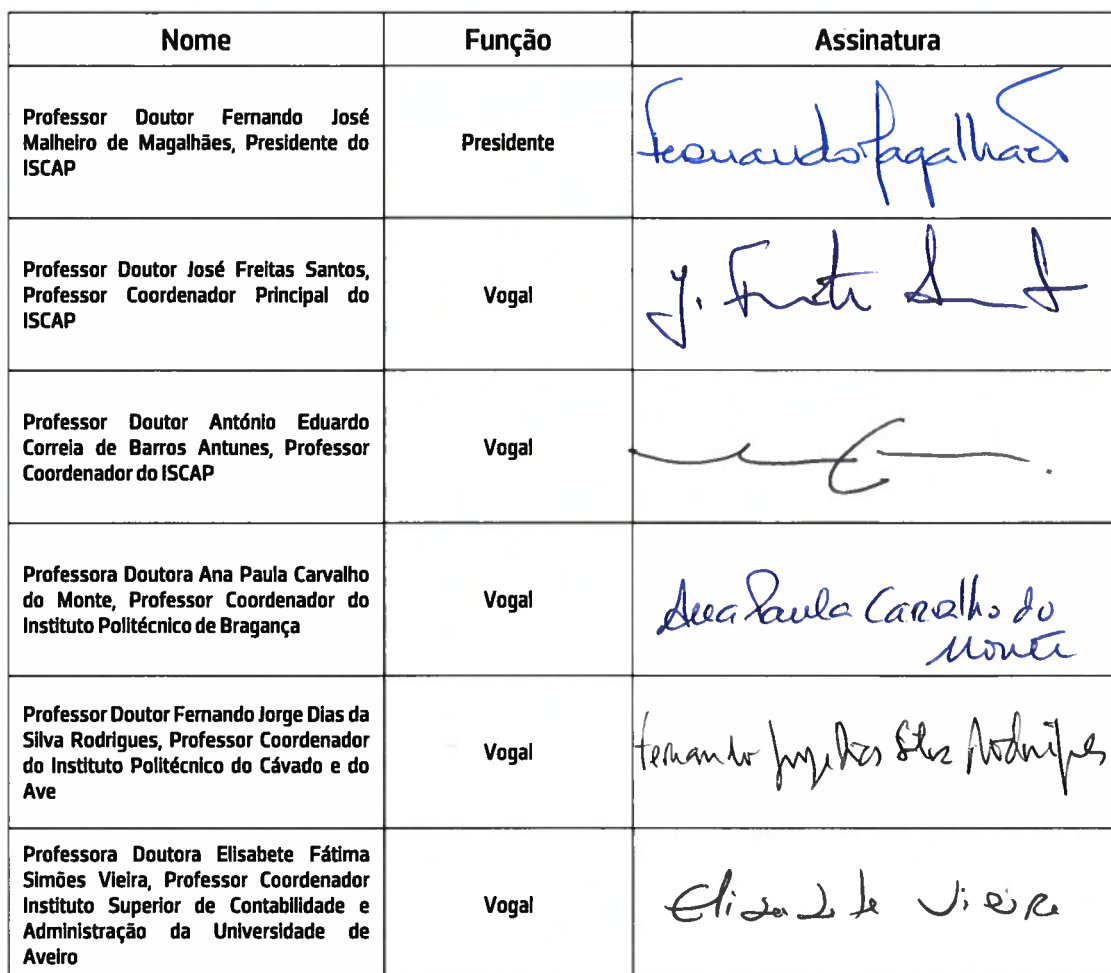 Nome Função Assinatura
Professor Doutor Fernando José
Malheiro de Magalhães, Presidente do
ISCAP
Presidente
Fernando Magalhães
Professor Doutor José Freitas Santos,
Professor Coordenador Principal do
ISCAP
Vogal
J.
Professor Doutor António Eduardo
Correia de Barros Antunes, Professor
Coordenador do ISCAP
Vogal
Professora Doutora Ana Paula Carvalho
do Monte, Professor Coordenador do
Instituto Politécnico de Bragança
Vogal
Ana Paula Carvalho do
Monte
Professor Doutor Fernando Jorge Dias da
Silva Rodrigues, Professor Coordenador
do Instituto Politécnico do Cávado e do
Ave
Vogal
Fernando Jorge Dias Silva Rodrigues
Professora Doutora Elisabete Fátima
Simões Vieira, Professor Coordenador
Instituto Superior de Contabilidade e
Administração da Universidade de
Aveiro
Vogal
Elisabete Vieira